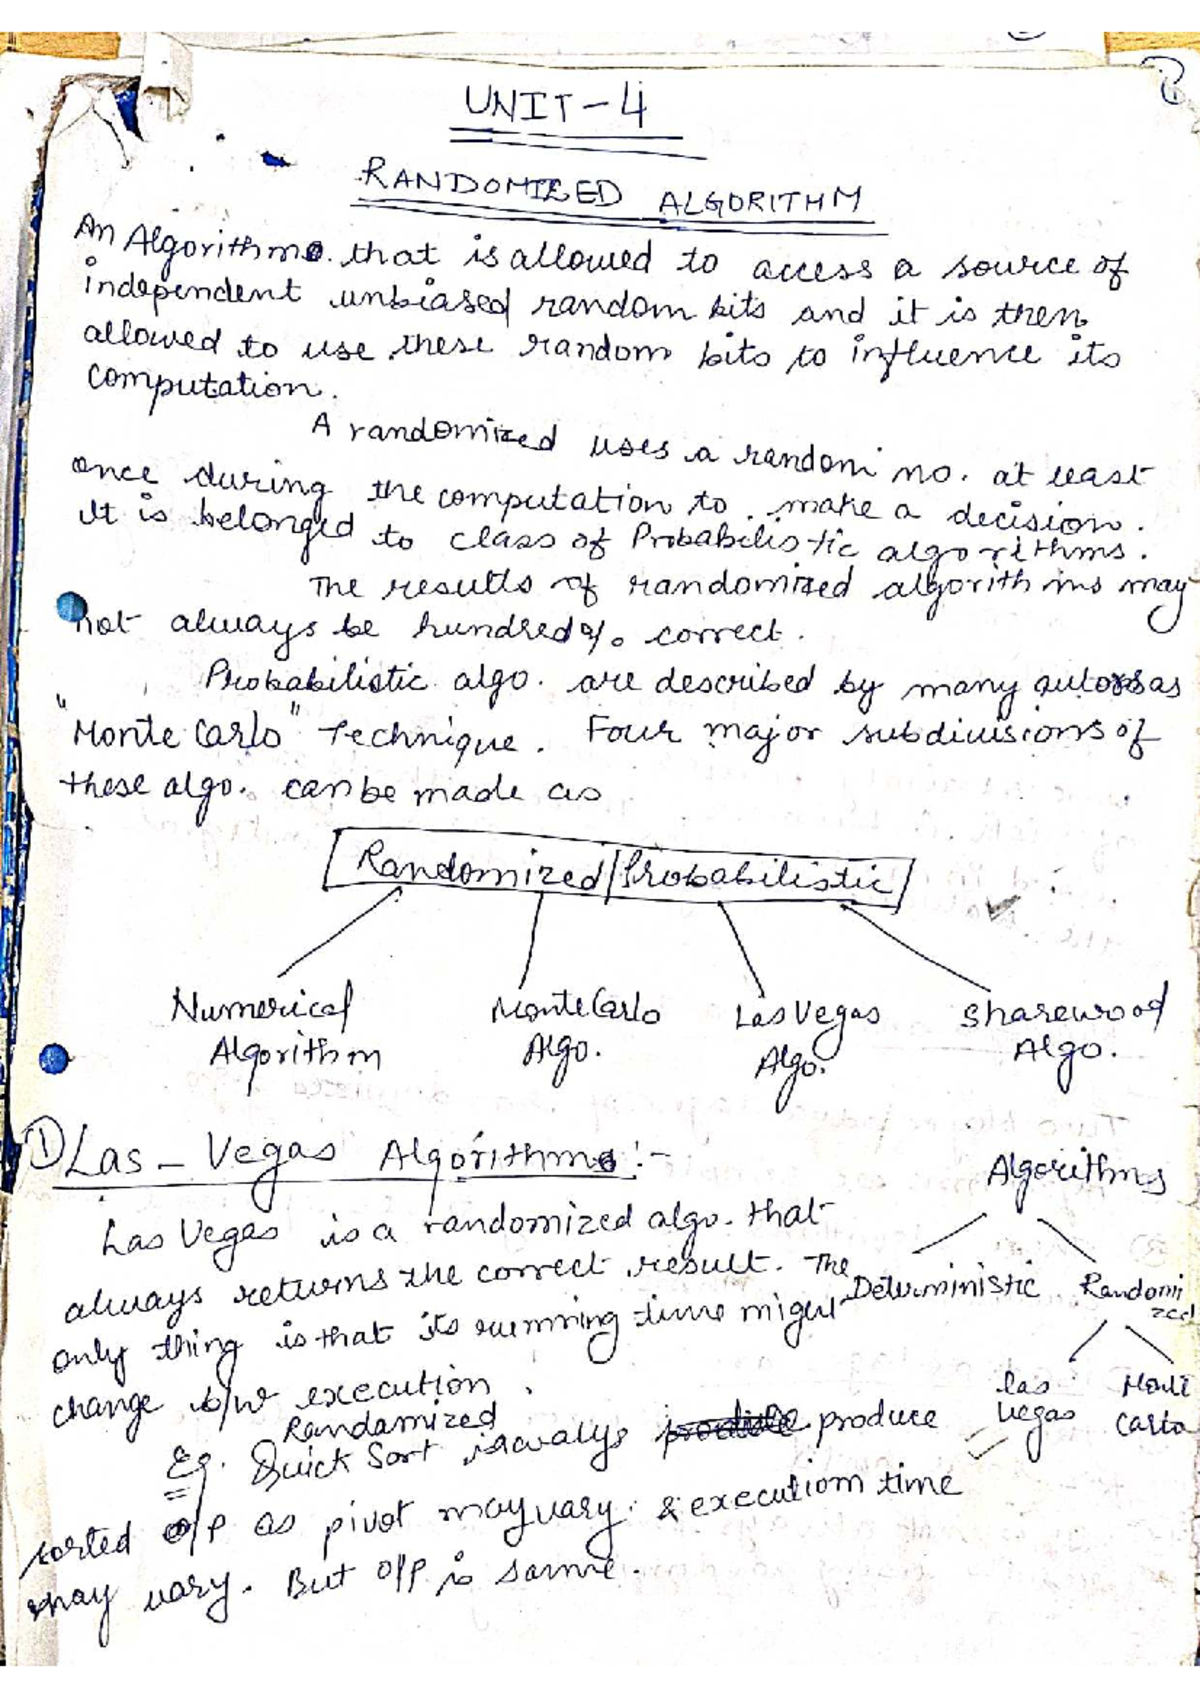 UNIT-4
RANDOMIZED ALGORITHM
An Algorithms. that is allowed to access a source of
independent unbiased random bits and it is then
allowed to use these random bits to influence its
computation.
A randomized uses a random no. at least
once during the computation to make a decision.
It is belonged to class of Probabilistic algorithms.
The results of randomized algorithms may
not always be hundred % correct.
Probabilistic algo. are described by many autors as
"Monte Carlo" Technique. Four major subdivisions of
these algo. can be made as
Randomized/Probabilistic
Numerical Algorithm
Monte Carlo Algo.
Las Vegas Algo.
Sharewood Algo.
① Las - Vegas Algorithms :-
Las Vegas is a randomized algo. that
always returns the correct result. The
only thing is that its running time might
change b/w execution.
Eg. Randamized Quick Sort is awalys produce
sorted O/P as pivot may vary. & execution time
may vary. But O/P is same.
Algorithms
Deterministic
Randomi
zed
las
vegas
Monte
Carlo